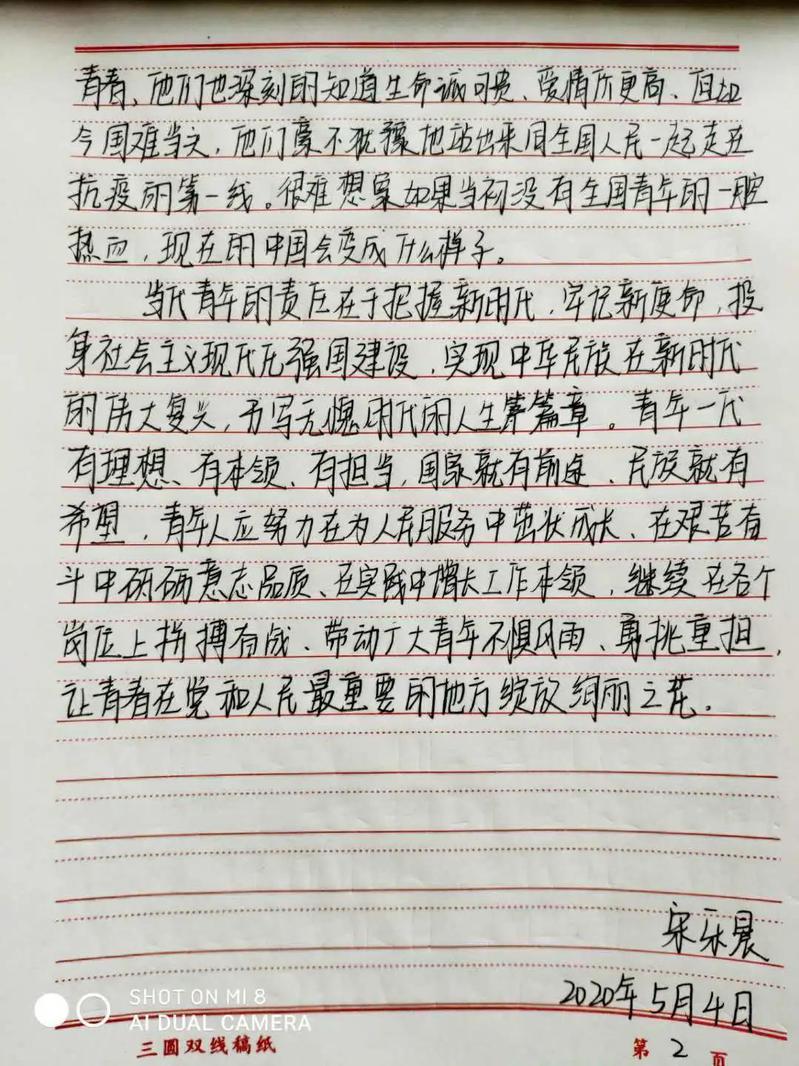 青春，他们也深刻的知道生命诚可贵、爱情价更高、但如
今国难当头，他们豪不犹豫地站出来同全国人民一起走在
抗疫的第一线。很难想象如果当初没有全国青年的一腔
热血，现在的中国会变成什么样子。
当代青年的责任在于把握新时代，牢记新使命，投
身社会主义现代化强国建设，实现中华民族在新时代
的伟大复兴，书写无愧时代的人生篇章。青年一代
有理想、有本领、有担当，国家就有前途、民族就有
希望，青年人应努力在为人民服务中茁壮成长、在艰苦奋
斗中砺砺意志品质、在实践中增长工作本领，继续在各个
岗位上拼搏有成、带动广大青年不惧风雨、勇挑重担，
让青春在党和人民最重要的地方绽放绚丽之花。
宋 晨
2020年5月4日
SHOT ON MI 8
AI DUAL CAMERA
三圆双线稿纸
第 2 页